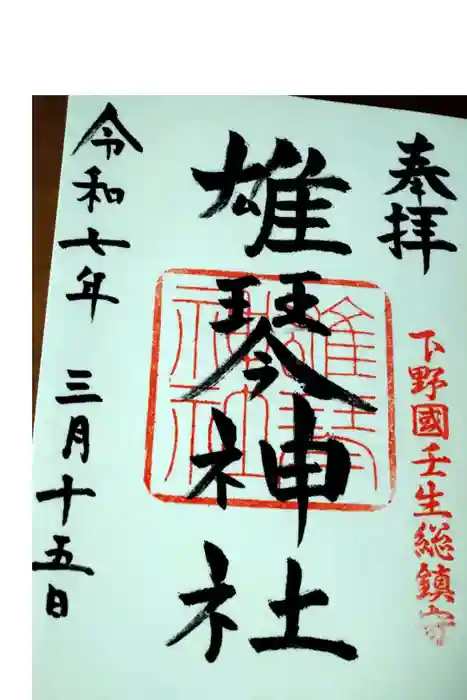 奉拝
下野國壬生総鎮守
雄琴神社
雄琴神社
令和七年 三月十五日